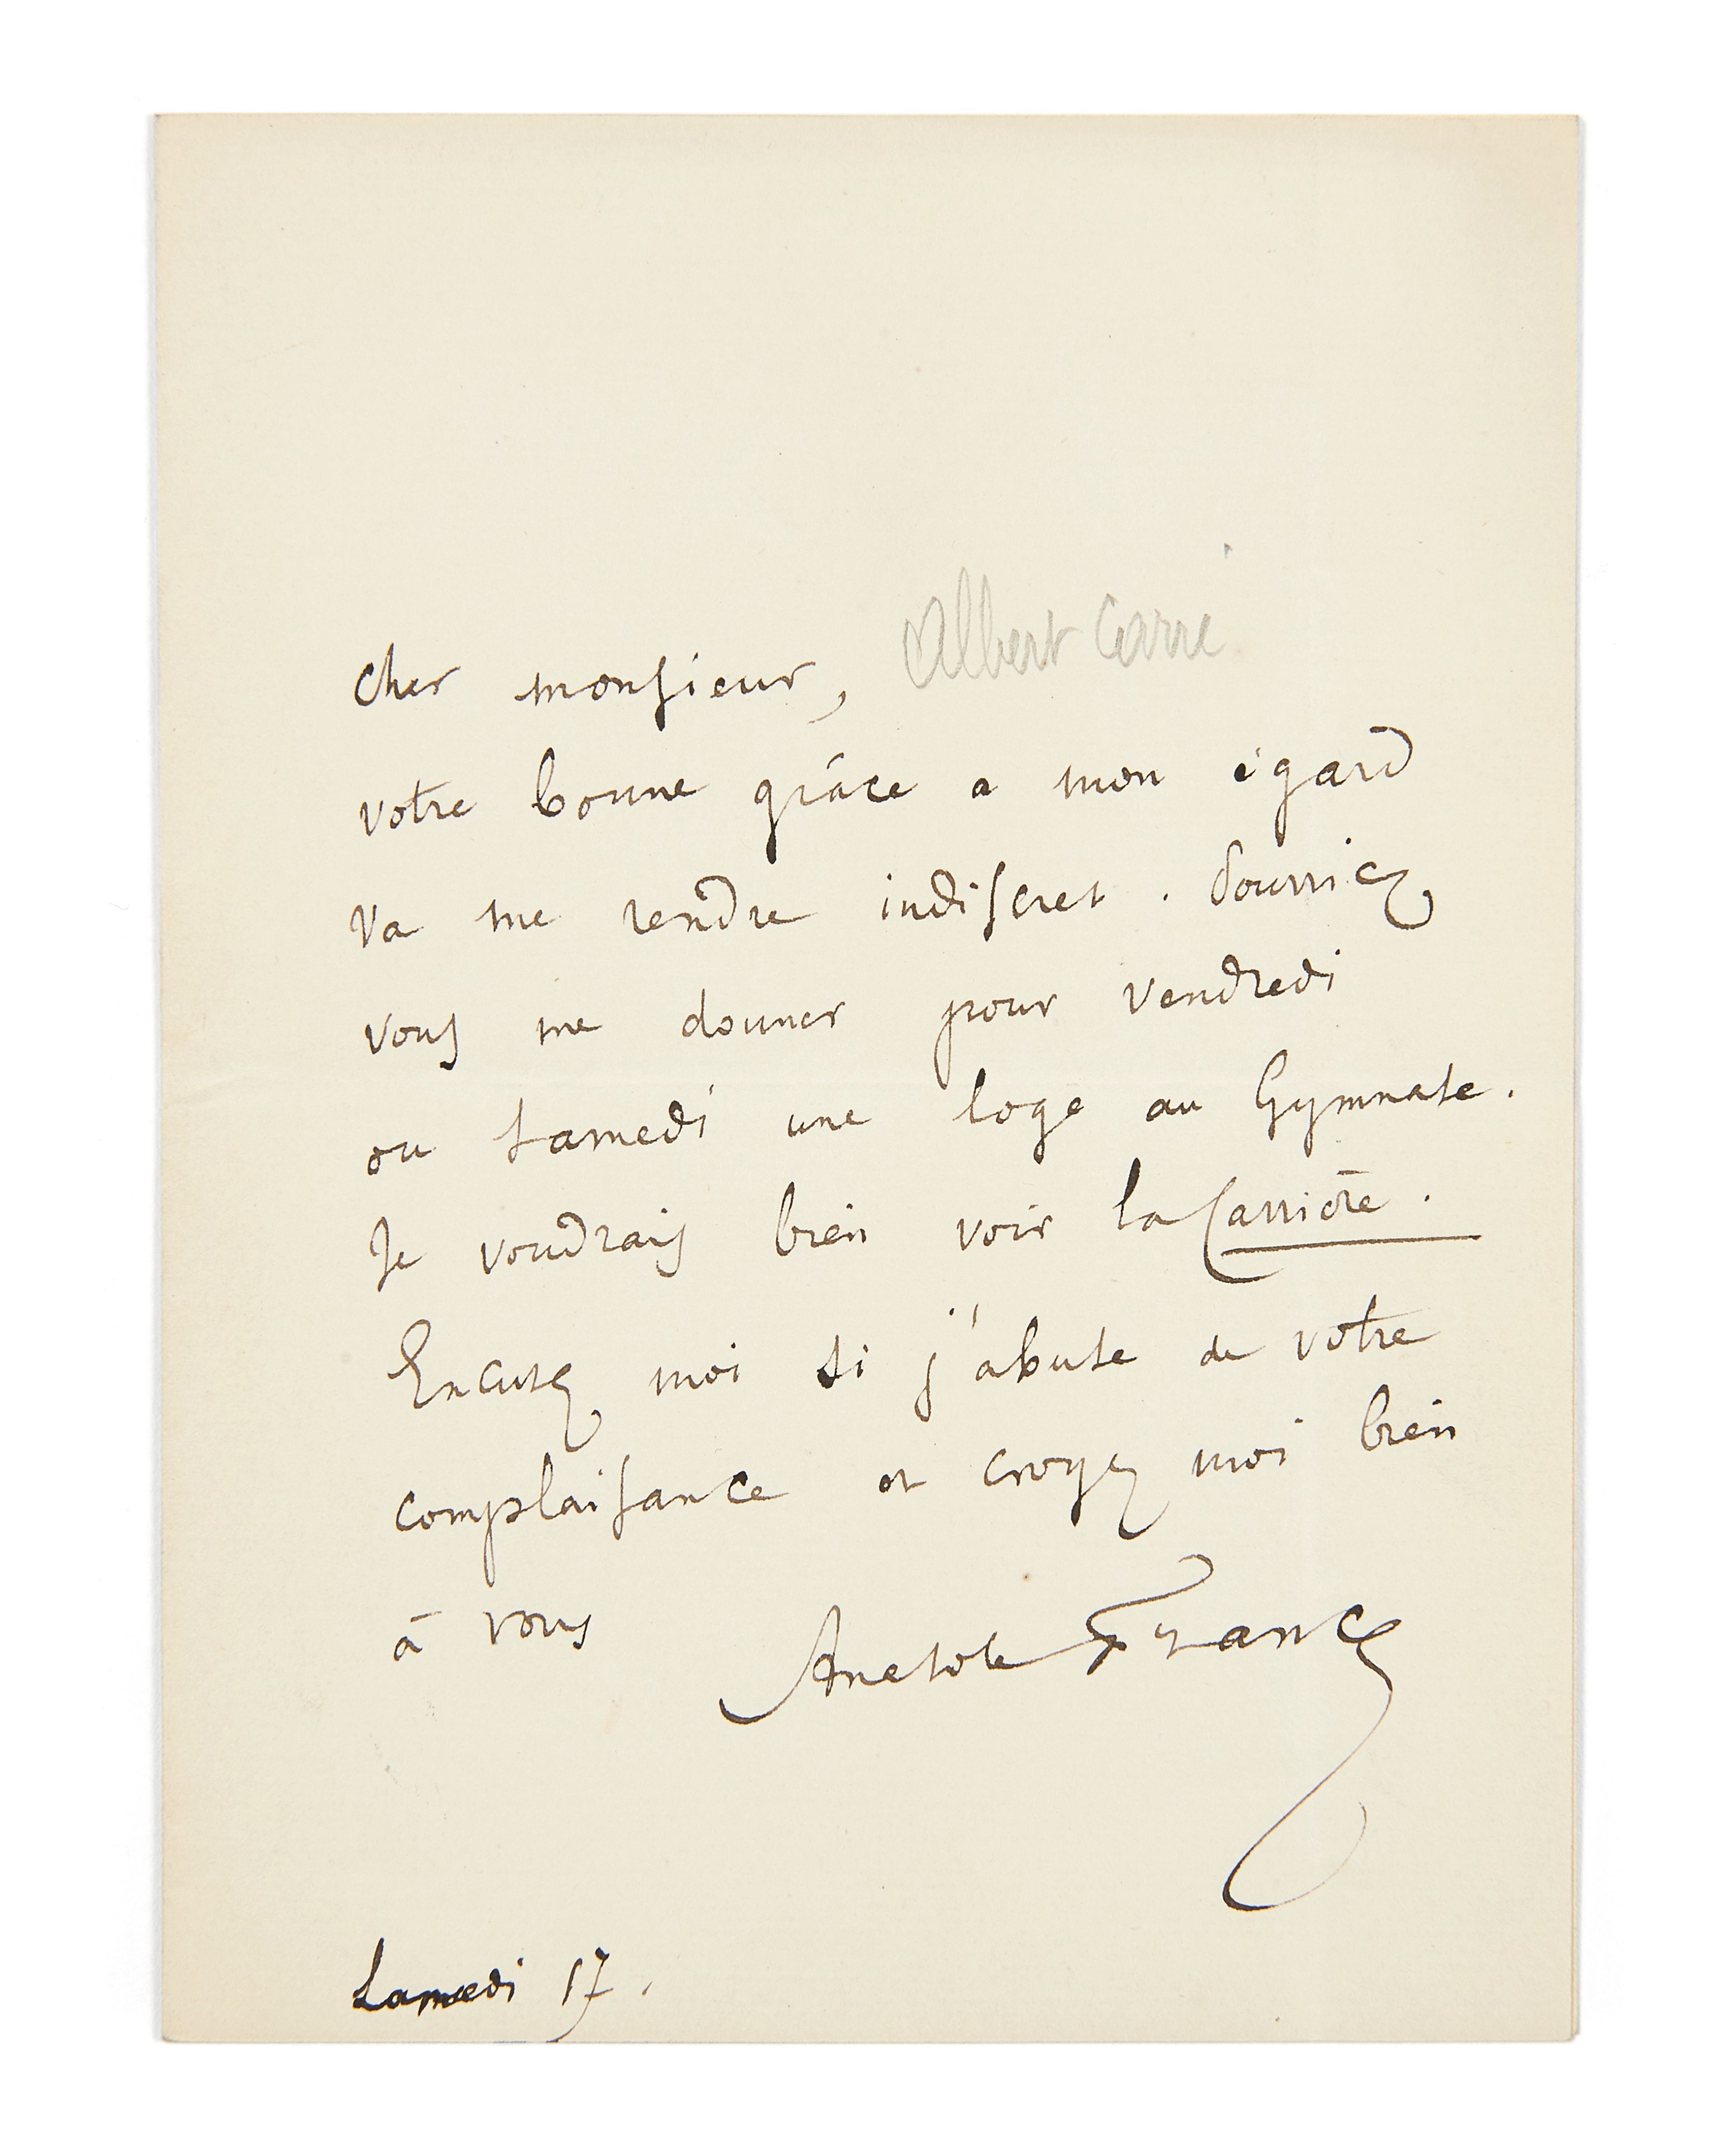 Albert Carré
Cher monsieur,
votre bonne grâce a mon égard
va me rendre indiscret. Pourriez
vous me donner pour vendredi
ou samedi une loge au Gymnase.
Je voudrais bien voir la Carrière.
Excusez moi si j'abuse de votre
complaisance et croyez moi bien
à vous
Anatole France
Samedi 17.